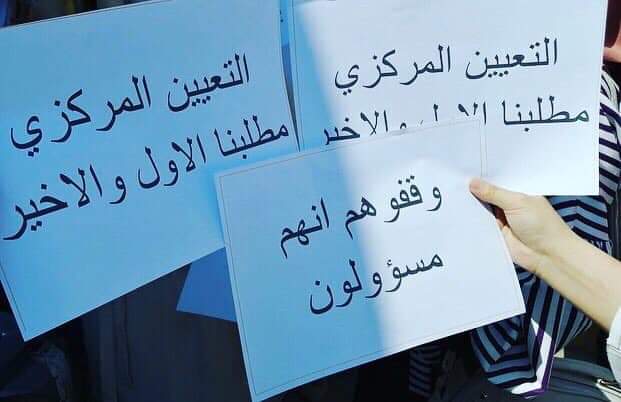 التعيين المركزي
مطلبنا الاول والاخير
التعيين المركزي
مطلبنا الاول والاخير
وقفوهم انهم
مسؤولون